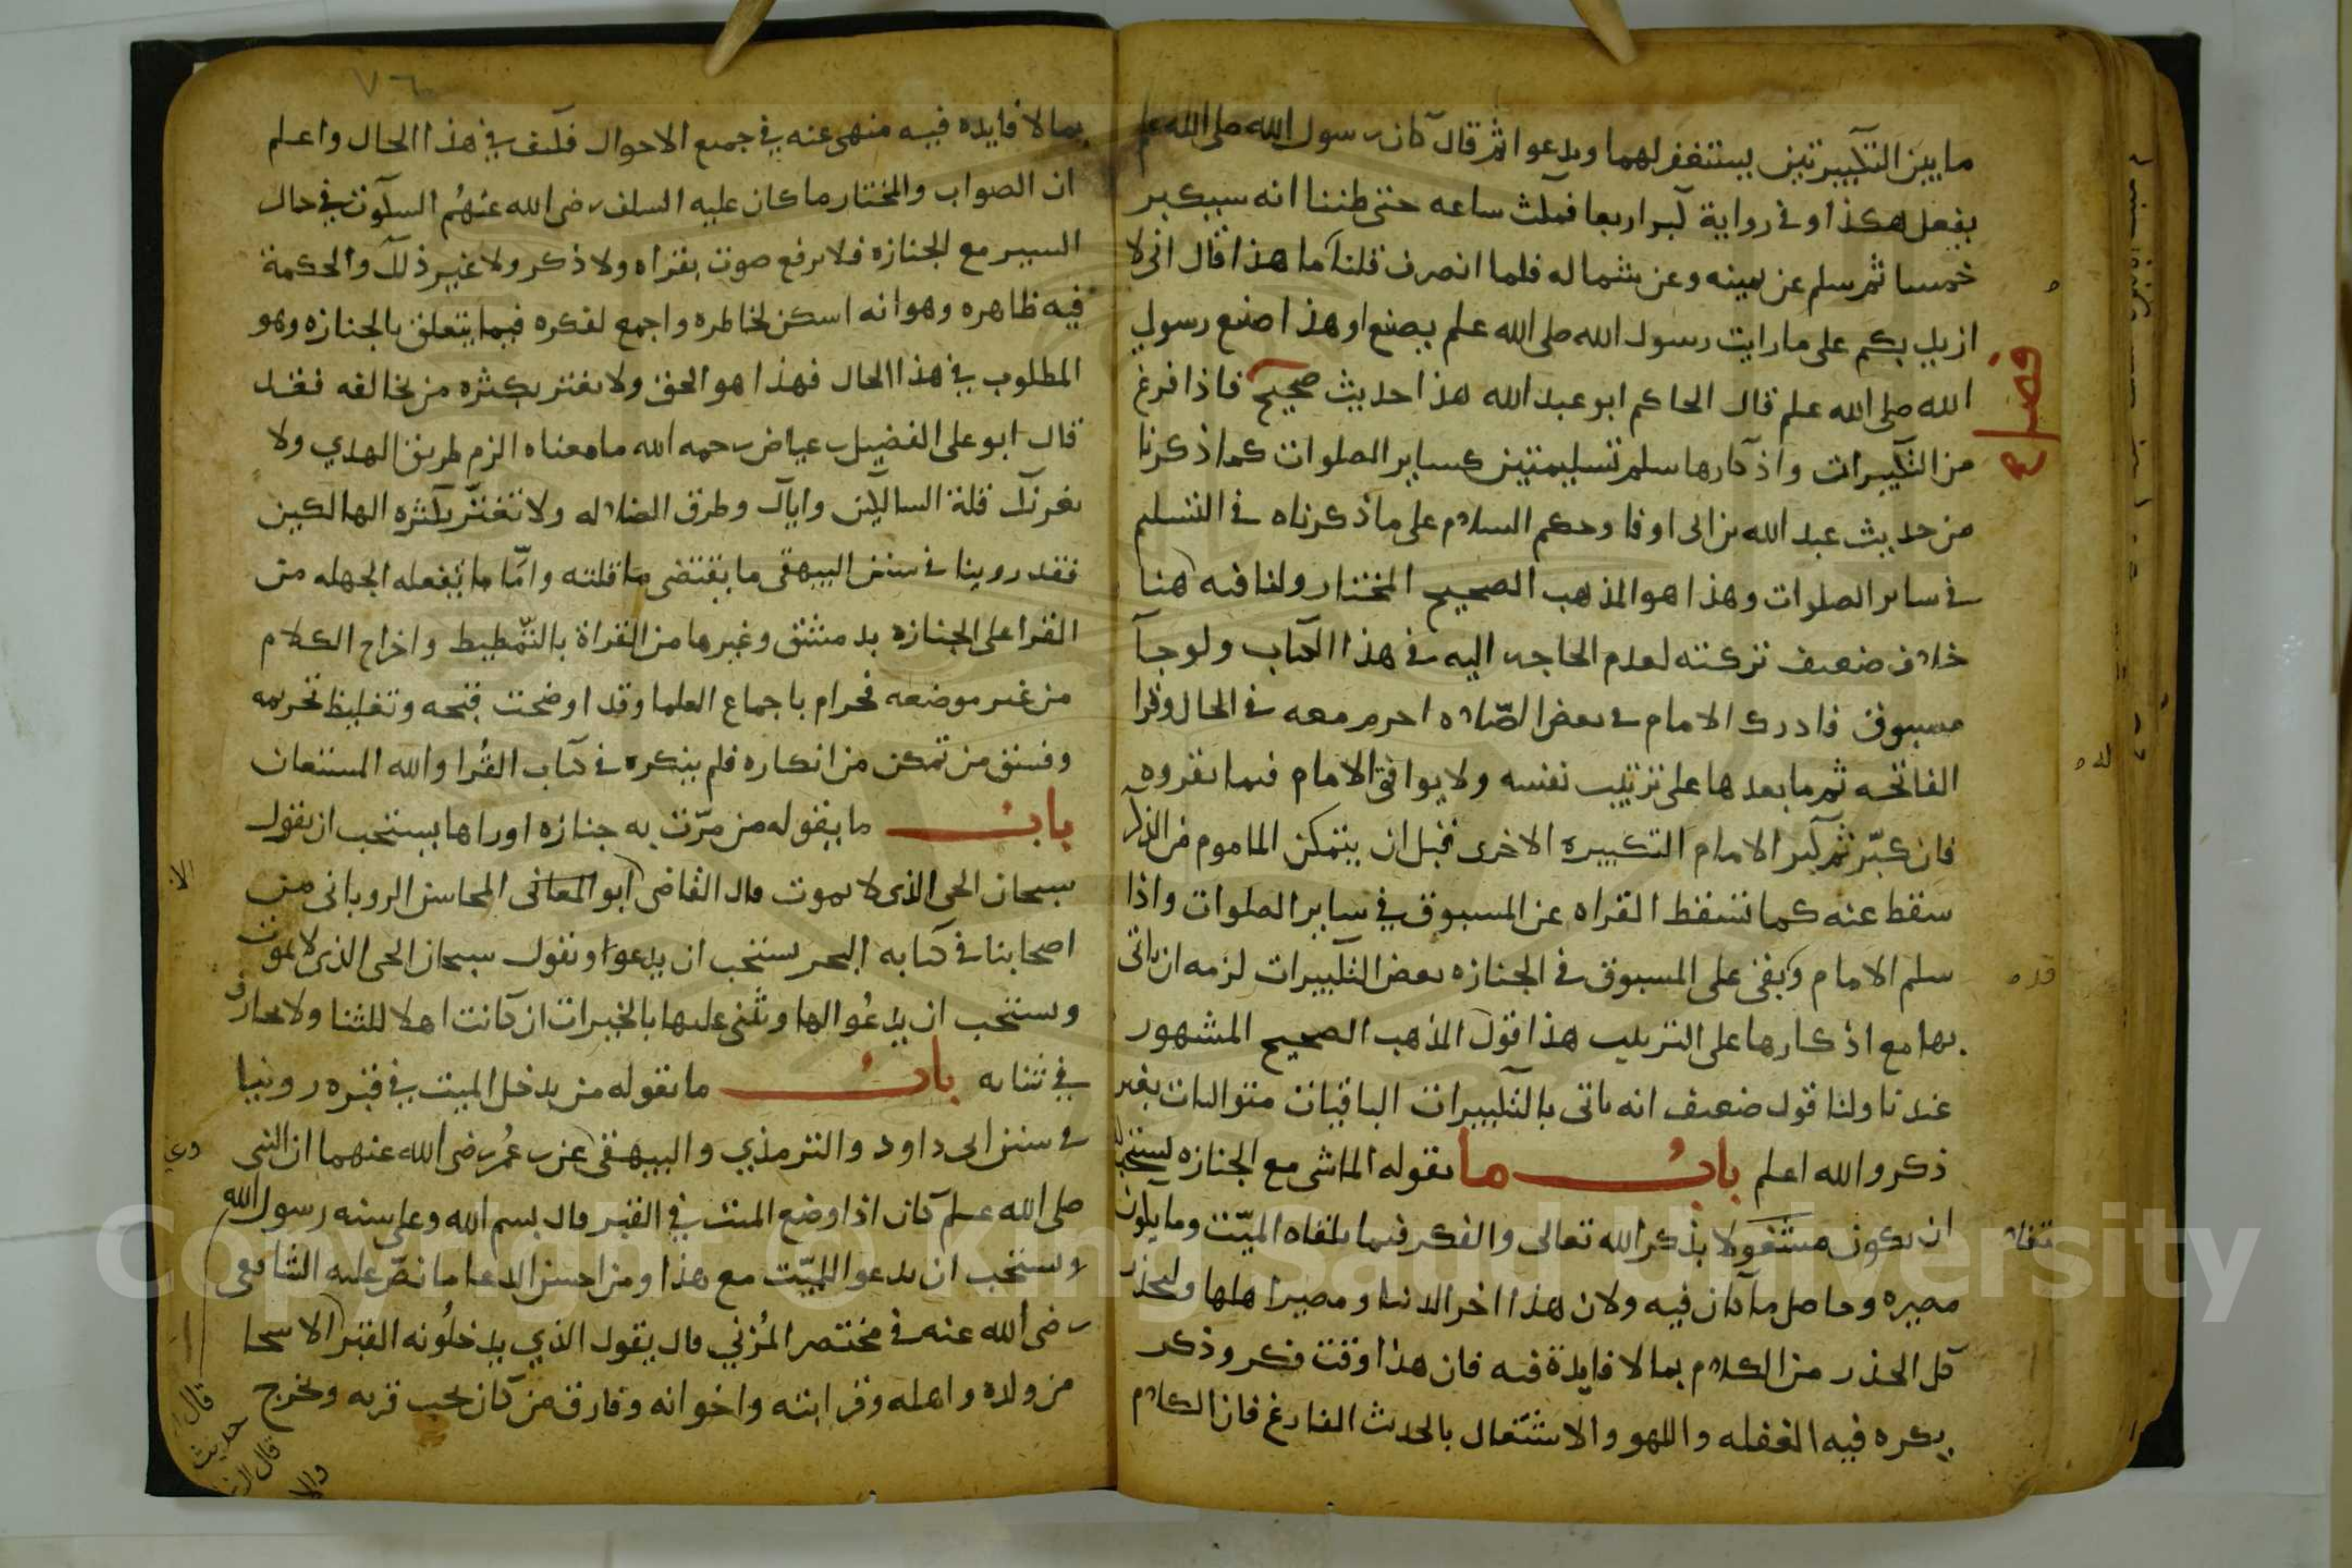 ما بين التكبيرتين يستغفر لهما ويدعوا ثم قال كان رسول الله صلى الله علم
يفعل هكذا وفي رواية كبر اربعا فمكث ساعه حتى ظننا انه سيكبر
خمسا ثم سلم عن يمينه وعن شماله فلما انصرف قلنا ما هذا قال اني لا
ازيد بكم على ما رايت رسول الله صلى الله علم يصنع او هذا صنع رسول
الله صلى الله علم قال الحاكم ابو عبد الله هذا حديث صحيح فاذا فرغ
من التكبيرات واذكارها سلم تسليمتين كساير الصلوات كما ذكرنا
من حديث عبد الله بن ابى اوفا وحكم السلام على ما ذكرناه في التسليم
في ساير الصلوات وهذا هو المذهب الصحيح المختار ولنا فيه هنا
خلاف ضعيف تركته لعدم الحاجه اليه في هذا الكتاب ولو جآ
مسبوق فادرك الامام في بعض الصّلاه احرم معه في الحال وقرا
الفاتحه ثم ما بعدها على ترتيب نفسه ولا يوافق الامام فيما يقروه
فان كبّر ثم كبر الامام التكبيره الاخرى قبل ان يتمكن الماموم من الذكر
سقط عنه كما تسقط القراه عن المسبوق في ساير الصلوات واذا
سلم الامام وبقى على المسبوق في الجنازه بعض التكبيرات لزمه ان ياتى
بها مع اذكارها على الترتيب هذا قول المذهب الصحيح المشهور
عندنا ولنا قول ضعيف انه ياتى بالتكبيرات الباقيات متواليات بغير
ذكر والله اعلم باب ما يقوله الماشى مع الجنازه يستحب
ان يكون مشغولا بذكر الله تعالى والفكر فيما يلقاه الميّت وما يكون
مصيره وحاصل ما كان فيه ولان هذا اخر الدنيا ومصير اهلها وليحذر
كل الحذر من الكلام بما لا فايدة فيه فان هذا وقت فكر وذكر
يكره فيه الغفله واللهو والاشتغال بالحديث الفارغ فان الكلام
فصل
٧٦
بما لا فايده فيه منهى عنه في جميع الاحوال فكيف في هذا الحال واعلم
ان الصواب والمختار ما كان عليه السلف رضى الله عنهُم السكوت في حال
السير مع الجنازه فلا يرفع صوت بقراه ولا ذكر ولا غير ذلك والحكمة
فيه ظاهره وهو انه اسكن لخاطره واجمع لفكره فيما يتعلق بالجنازه وهو
المطلوب في هذا الحال فهذا هو الحق ولا يغتر بكثره من يخالفه فقد
قال ابو على الفضيل بن عياض رحمه الله ما معناه الزم طريق الهدي ولا
يغرنك قلة السالكين واياك وطرق الضلاله ولا تغترّ بكثره الهالكين
فقد روينا في سنن البيهقى ما يقتضى ما قلته وامّا ما يفعله الجهله من
القرا على الجنازه بدمشق وغيرها من القراة بالتّمطيط واخراج الكلام
من غير موضعه فحرام باجماع العلما وقد اوضحت قبحه وتغليظ تحريمه
وفسق من تمكن من انكاره فلم ينكره في كتاب القُرا والله المستعان
باب ما يقوله من مرّت به جنازه او راها يستحب ان يقول
سبحان الحى الذى لا يموت قال القاضى ابو المعافى المحاسن الرويانى من
اصحابنا في كتابه البحر يستحب ان يدعوا ويقول سبحان الحى الذى لا يموت
ويستحب ان يدعُوا لها ويثنى عليها بالخيرات ان كانت اهلا للثنا ولا يجازف
في ثنايه باب ما يقوله من يدخل الميت في قبره روينا
في سنن ابى داود والترمذي والبيهقى عن بن عُمر رضى الله عنهما ان النبى
صلى الله علم كان اذا وضع الميت في القبر قال بسم الله وعلى سنه رسول الله
ويستحب ان يدعوا للميّت مع هذا ومن احسن الدعا ما نصّ عليه الشافعى
رضى الله عنه في مختصر المُزني قال يقول الذي يدخلُونه القبر الاشحا
من ولده واهله وقرابته واخوانه وفارق من كان يحب قربه وخرج
قال
حديث
قال
Copyright © King Saud University